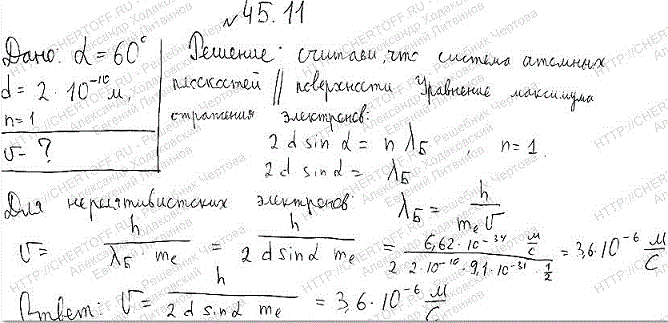 №45.11
Дано: α = 60°
d = 2 · 10⁻¹⁰ м,
n = 1
v - ?
Решение: считаем, что система атомных
плоскостей // поверхности Уравнение максимума
отражения электронов:
2 d sin α = n λ_Б , n = 1.
2 d sin α = λ_Б
Для нерелятивистских электронов: λ_Б = h / (m_e v)
v = h / (λ_Б · m_e) = h / (2 d sin α m_e) = (6,62 · 10⁻³⁴ м/с) / (2 · 2 · 10⁻¹⁰ · 9,1 · 10⁻³¹ · 1/2) = 3,6 · 10⁻⁶ м/с
Ответ: v = h / (2 d sin α m_e) = 3,6 · 10⁻⁶ м/с
HTTP://CHERTOFF.RU - Решебник Чертова
Александр Ходаковский
Евгений Литвинов